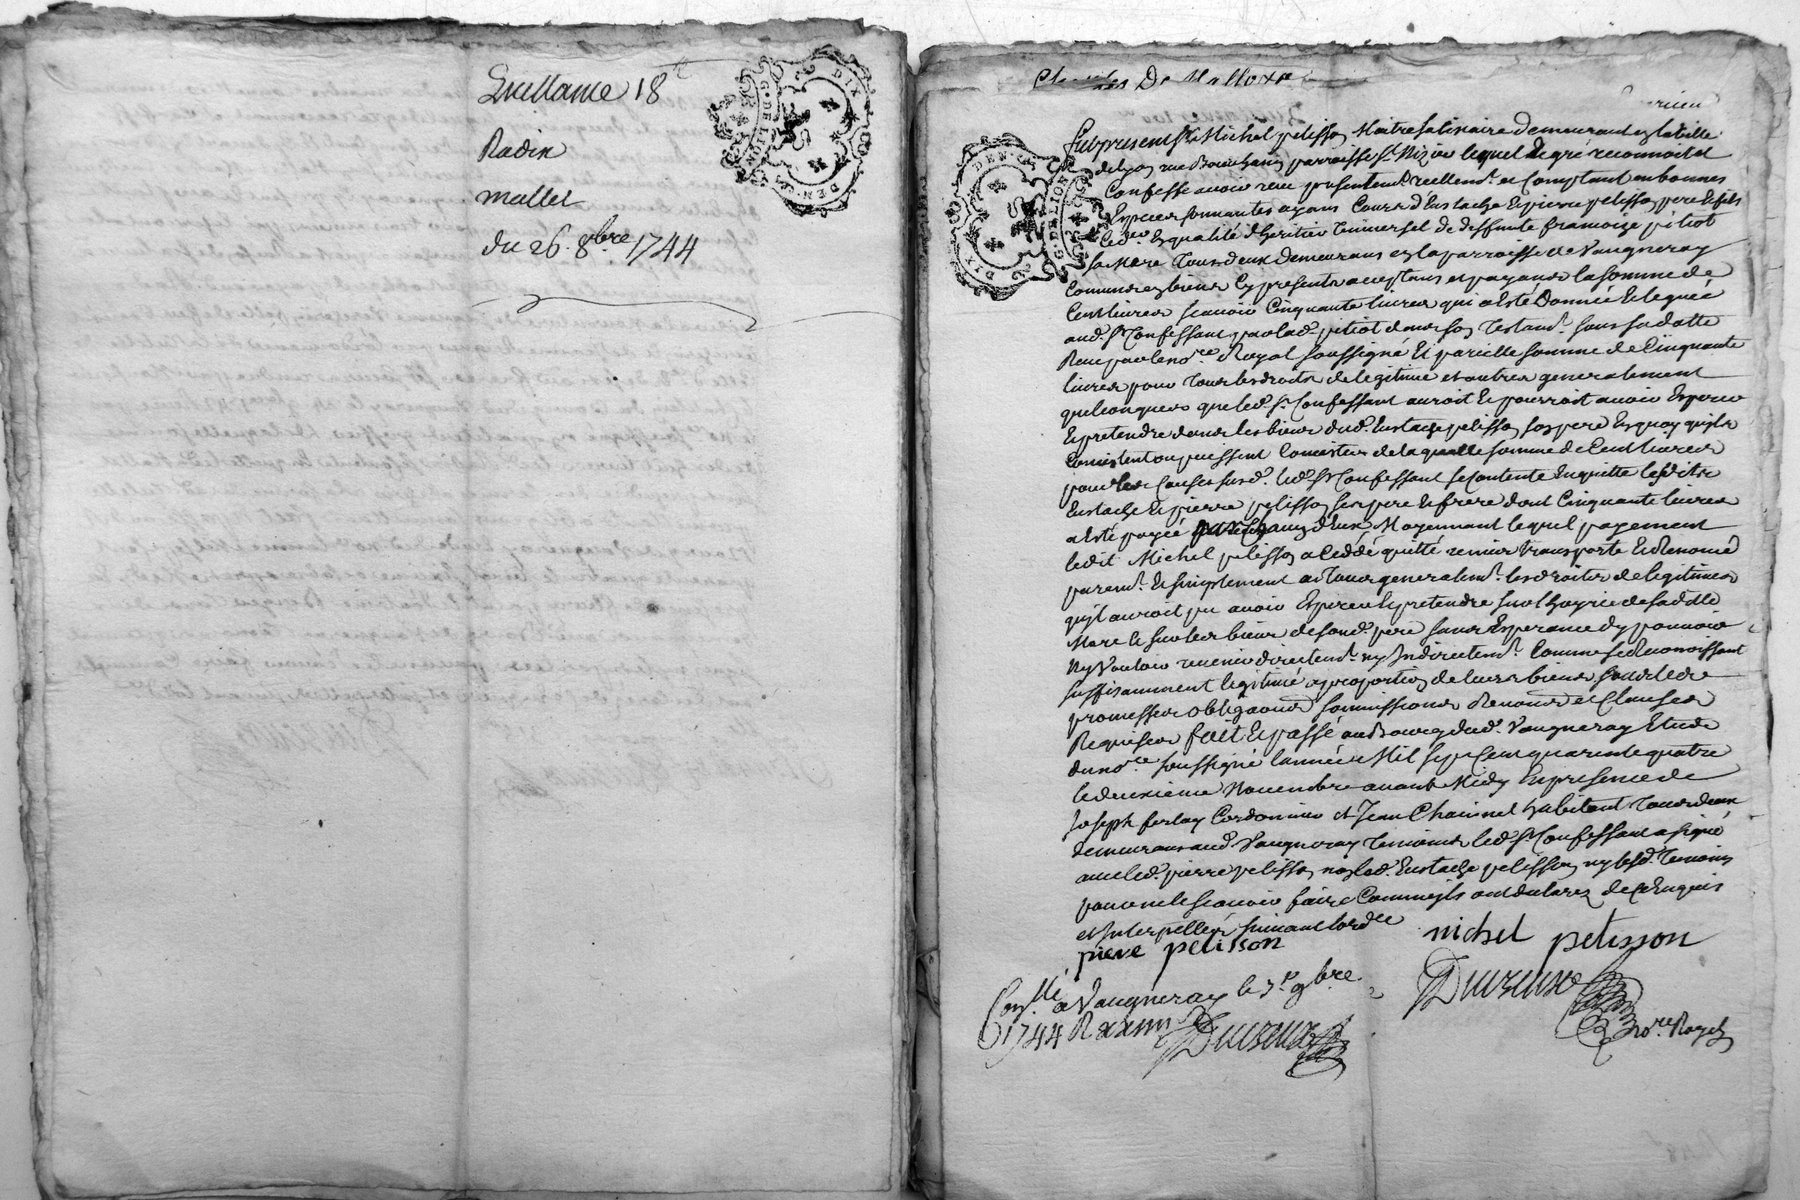 18
Radix
mallet
du 26. 8bre 1744
G. DE LION
DIX
DEN
De Mallox
G. DE LION
DIX
DEN
fut present Sr Michel pelisson Maitre satinaire demeurant en la ville
de Lyon rue parroisse St Nizier lequel de gré reconnoit et
Confesse avoir receu presentemt. reellemt. et Comptant en bonnes
Especes sonnantes ayans Cours d'Eustache et pierre pelisson pere et fils
Ced. en qualité d'heritier universel de deffunte françoize pitiot
sa Mere tous deux demeurans en la parroisse de Vaugneray
Communs en biens Cy presents acceptans et payans la somme de
Cent livres scavoir Cinquante livres qui a Esté Donnée et leguée
aud. Sr Confessant par lad. pitiot dans son Testamt. sous sa datte
Receu par le nore. Royal soussigné Et pareille somme de Cinquante
livres pour tous les droits de legitime et autres generalement
quelconques que led. Sr Confessant auroit et pourroit avoir Esperer
et pretendre dans les biens dud. Eustache pelisson son pere En quoy qu'ils
Consistent ou puissent Consister de laquelle somme de Cent livres
pour les Causes susd. led. Sr Confessant se Contente En quitte lesdits
Eustache et pierre pelisson ses pere et frere dont Cinquante livres
a Esté payée par Chacun d'Eux Moyennant lequel payement
ledit Michel pelisson a Ceddé quitté remis transporté Et Renoncé
puremt. Et simplement a Tous generalemt. les droits de legitimes
qu'il auroit pu avoir Esperer Et pretendre sur l'hoyrie de sadte.
Mere Et sur les biens de sond. pere sans Esperance d'y pouvoir
Ny Vouloir revenir directemt. ny Indirectemt. Comme se Reconnoissant
suffisamment legitimé a proportion de leurs biens
promesses obligations soumissions Renons et Clauses
Requises fait Et passé au Bourg dud. Vaugneray Etude
du nore soussigné l'année Mil sept Cent quarente quatre
le deuxieme Novembre avant Midy En presence de
Joseph ferlay Cordonnier et Jean Habitant tous deux
demeurans aud. Vaugneray Temoins led. Sr Confessant a signé
avec led. pierre pelisson non led. Eustache pelisson ny lesd. Temoins
pour ne le scavoir faire Comm'ils ont declarez de ce Enquis
et Interpellés suivant l'ordce
pierre pelisson michel pelisson
Conllé a Vaugneray le 9bre
1744 R
nore. Royal